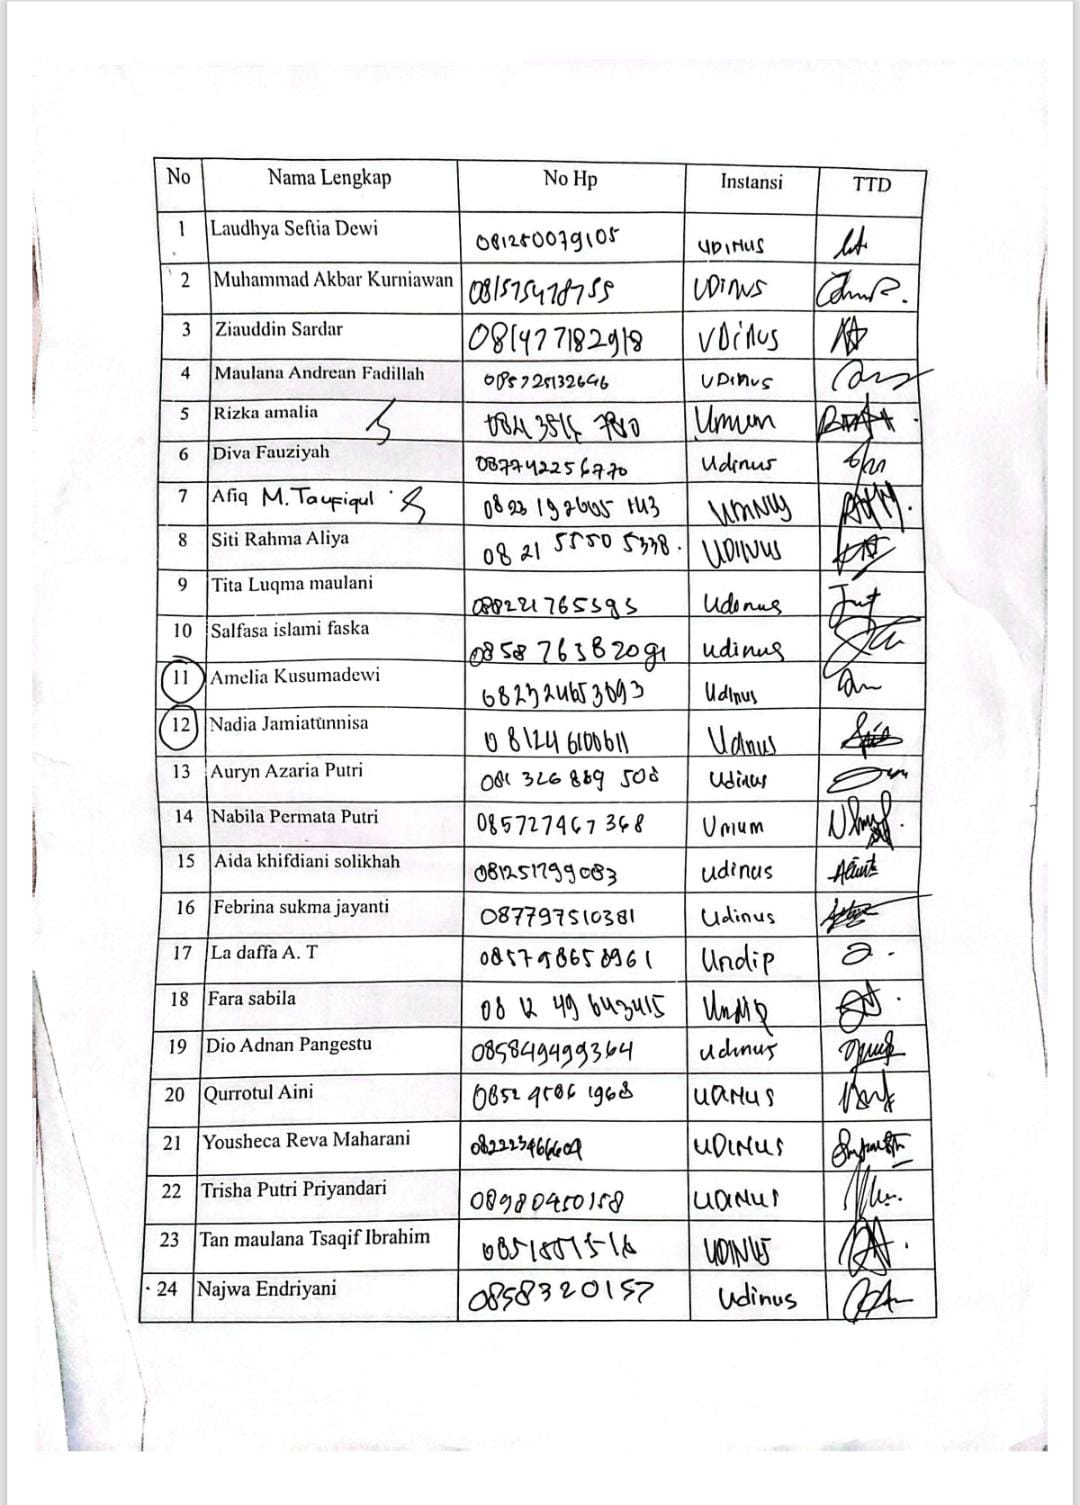 No Nama Lengkap No Hp Instansi TTD
1 Laudhya Seftia Dewi 081250079105 UDINUS
2 Muhammad Akbar Kurniawan UDINUS
3 Ziauddin Sardar 081477182918 UDINUS
4 Maulana Andrean Fadillah 085725132646 UDINUS
5 Rizka amalia
6 Diva Fauziyah 087742256770 Udinus
7 Afiq M. Taufiqul
8 Siti Rahma Aliya 08 21 5550 5338. UDINUS
9 Tita Luqma maulani 088221765593 Udinus
10 Salfasa islami faska udinus
11 Amelia Kusumadewi 082324653093 Udinus
12 Nadia Jamiatunnisa 081246100611 Udinus
13 Auryn Azaria Putri 081 326 889 508 Udinus
14 Nabila Permata Putri 085727467 368
15 Aida khifdiani solikhah 081251799083 udinus
16 Febrina sukma jayanti 087797510381 Udinus
17 La daffa A. T 085798658961 Undip
18 Fara sabila 08 12 49 643415
19 Dio Adnan Pangestu 085849499364 udinus
20 Qurrotul Aini 0852 9586 1968
21 Yousheca Reva Maharani UDINUS
22 Trisha Putri Priyandari 08980450158
23 Tan maulana Tsaqif Ibrahim UDINUS
24 Najwa Endriyani 0858320157 Udinus